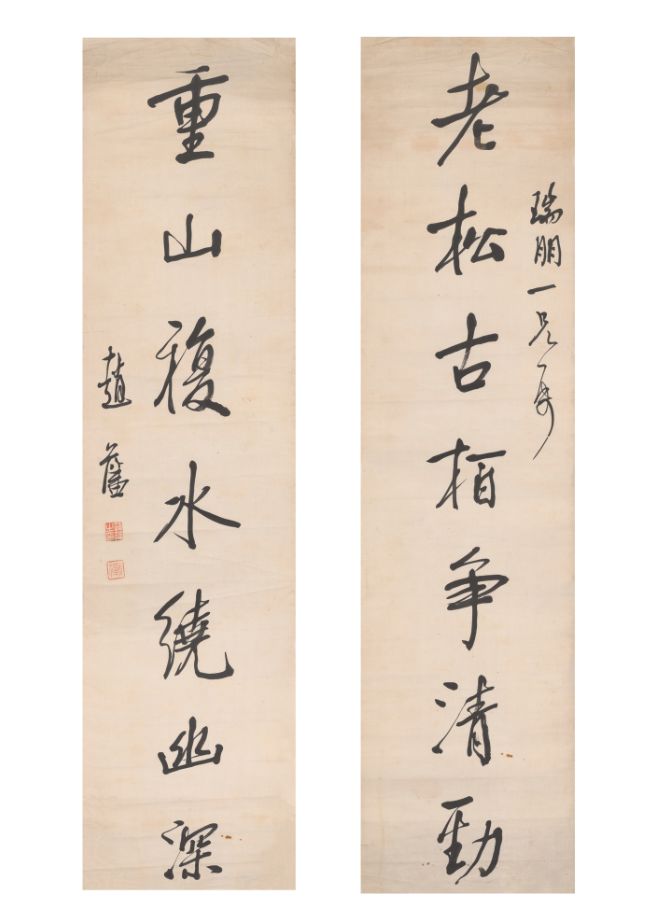 瑞朋一兄
老松古栢争清勁
重山複水繞幽深
趙